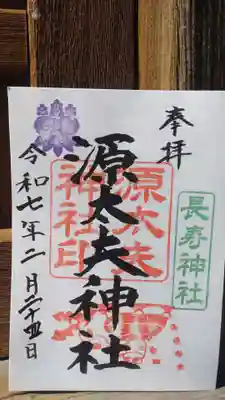 奉拝
長寿神社
源太夫神社
源太夫神社印
令和七年二月二十五日